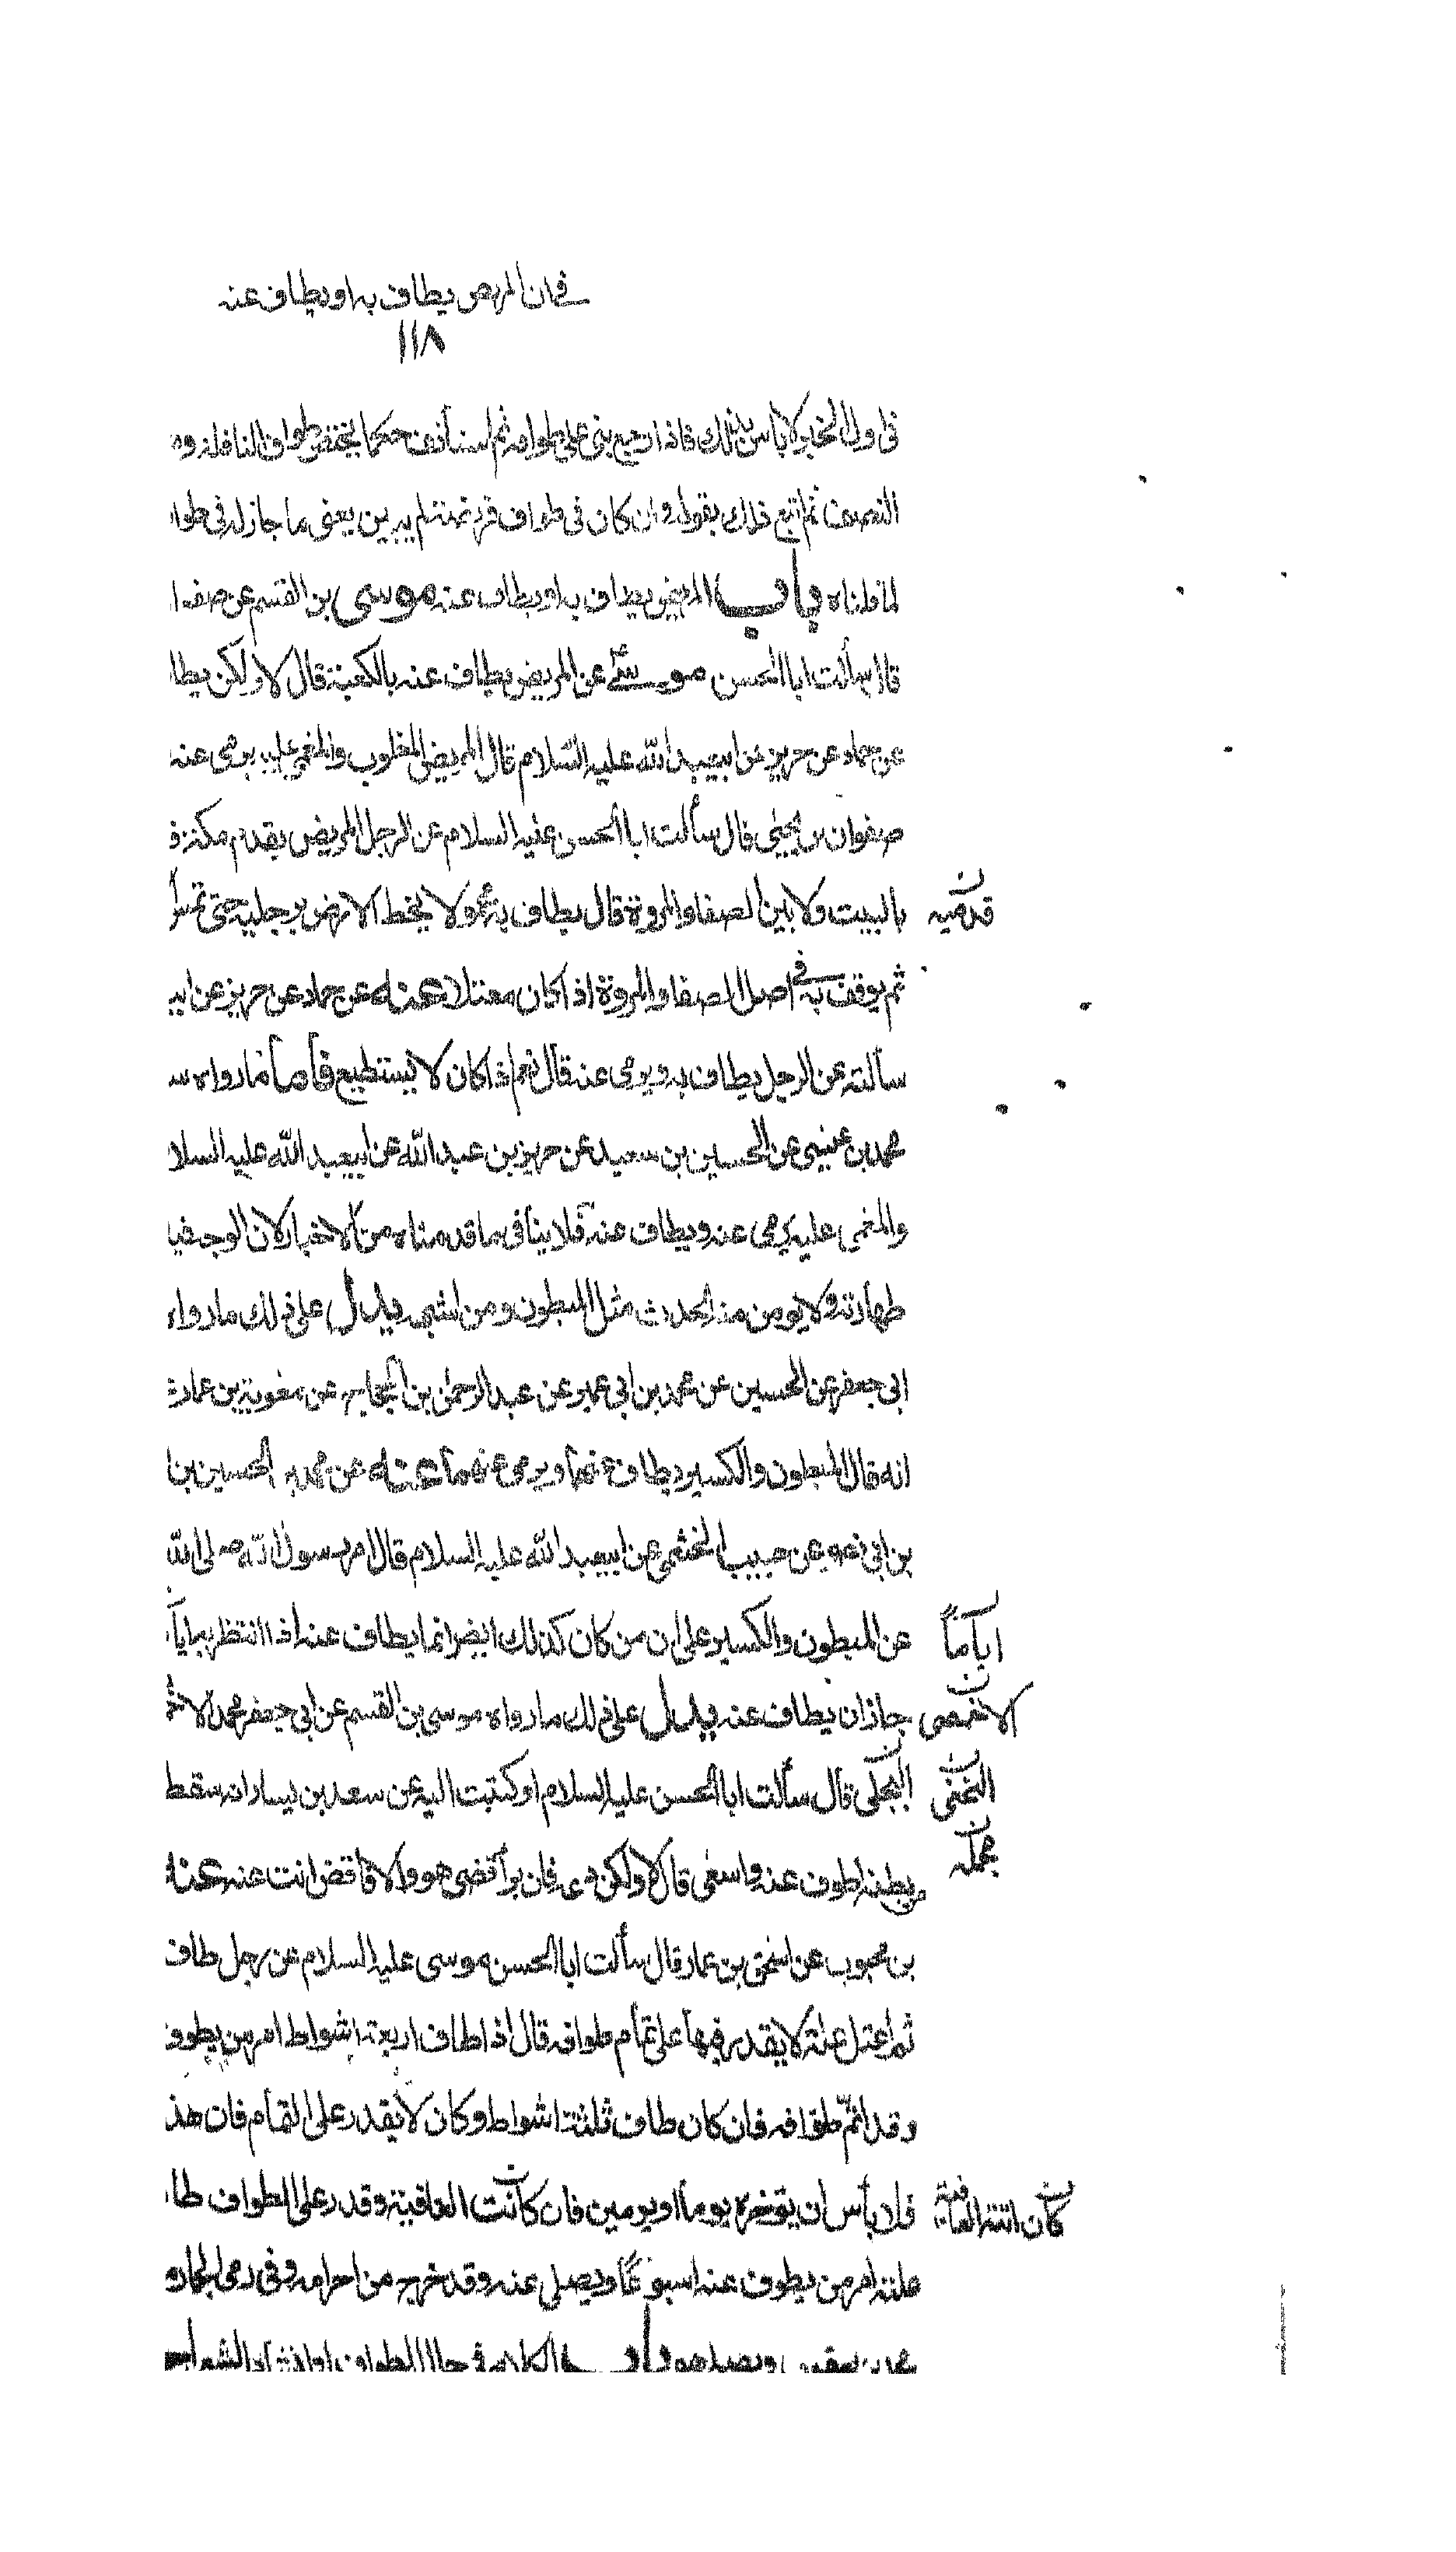 في ان المريض يطاف به او يطاف عنه
١١٨
في اول الخبر لا بأس بذلك فاذا رجع بنى على طوافه ثم استأنف حكما يختص طواف النافلة وه
النصف ثم اتبع ذلك بقوله وان كان في طواف فريضة لم يبن يعني ما جاز له في طوا
لما قلناه باب المريض يطاف به او يطاف عنه موسى بن القسم عن صفوا
قال سألت ابا الحسن موسى ع عن المريض يطاف عنه بالكعبة قال لا ولكن يطا
عن حماد عن حريز عن ابيعبد الله عليه السلام قال المريض المغلوب والمغمى عليه يرمى عنه
صفوان بن يحيى قال سألت ابا الحسن عليه السلام عن الرجل المريض يقدم مكة ف
بالبيت ولا بين الصفا والمروة قال يطاف به محمولا يخط الارض برجليه حتى تمس
قدميه
ثم يوقف به في اصل الصفا والمروة اذا كان معتلا عنه عن حماد عن حريز عن ابي
سألته عن الرجل يطاف به ويرمى عنه قال نعم اذا كان لا يستطيع فأما ما رواه س
محمد بن عيسى عن الحسين بن سعيد عن حريز بن عبد الله عن ابيعبد الله عليه السلا
والمغمى عليه يرمى عنه ويطاف عنه فلا ينافى ما قدمناه من الاخبار لان الوجه فيا
طهارته ولا يؤمن منه الحدث مثل المبطون ومن اشبهه يدل على ذلك ما رواه
ابي جعفر عن الحسين عن محمد بن ابي عمير عن عبد الرحمن بن الحجاج عن معوية بن عمار ع
انه قال المبطون والكسير يطاف عنهما ويرمى عنهما عنه عن محمد بن الحسين بن ا
بن ابي عمير عن حبيب الخثعمي عن ابيعبد الله عليه السلام قال امر رسول الله صلى الله
عن المبطون والكسير على ان من كان كذلك ايضا انما يطاف عنه اذا انتظر به ايا
اياماً
جاز ان يطاف عنه يدل على ذلك ما رواه موسى بن القسم عن ابي جعفر محمد الاح
الاخمصي
البجلي قال سألت ابا الحسن عليه السلام او كتبت اليه عن سعد بن يسار انه سقط
النخعي
بطنه اطوف عنه واسعى قال لا ولكن دعه فان برأ قضى هو والا فاقض انت عنه عنه
بن محبوب عن اسحق بن عمار قال سألت ابا الحسن موسى عليه السلام عن رجل طاف
ثم اعتل علة لا يقدر فيها على تمام طوافه قال اذا طاف اربعة اشواط امر من يطوف
وقد تم طوافه فان كان طاف ثلثة اشواط وكان لا يقدر على التمام فان هذ
فلا بأس ان يؤخره يوما او يومين فان كانت العافية وقدر على الطواف طا
كان اتته العافية
علته امر من يطوف عنه اسبوعا ويصلي عنه وقد خرج من احرامه وفي رمي الجمار و
محمد بن يعقوب